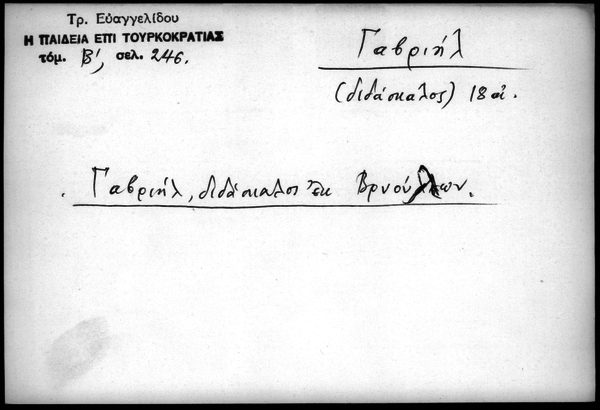 Τρ. Εὐαγγελίδου
Η ΠΑΙΔΕΙΑ ΕΠΙ ΤΟΥΡΚΟΚΡΑΤΙΑΣ
τόμ. Β', σελ. 246.
Γαβριήλ
(διδάσκαλος) 18 αἰ.
Γαβριήλ, διδάσκαλος ἐκ